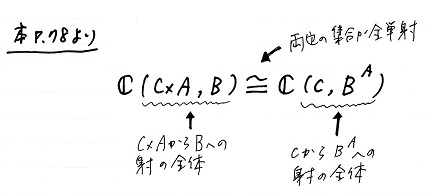 本P.78より
両辺の集合が全単射
ℂ(C×A, B) ≅ ℂ(C, B^A)
C×AからBへの
射の全体
CからB^Aへの
射の全体